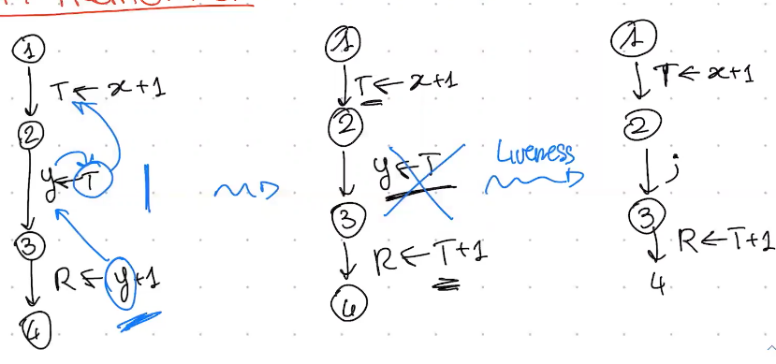 1
T ← x+1
2
y ← T
3
R ← y+1
4
1
T ← x+1
2
y ← T
3
R ← T+1
4
Liveness
1
T ← x+1
2
;
3
R ← T+1
4